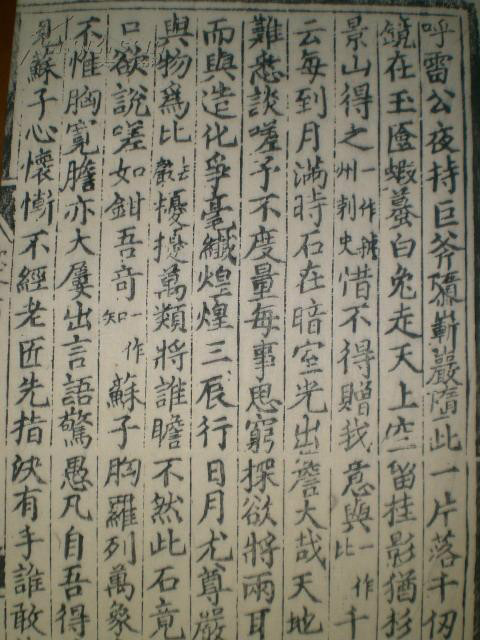 呼雷公夜持巨斧隳嶄巖隋此一片落千仞
鏡在玉匳蝦蟇白兔走天上空留桂影猶杉
景山得之一作州刺史惜不得贈我意與一作比千
云每到月滿時石在暗室光出簷大哉天地
難悉談嗟予不度量每事思窮探欲將兩耳
而與造化爭毫纖煌煌三辰行日月尤尊嚴
與物爲比擾擾萬類將誰瞻不然此石竟
口欲說嗟如鉗吾奇一作知蘇子胸羅列萬象
不惟胸寬膽亦大屢出言語驚愚凡自吾得
見蘇子心懷慚不經老匠先指決有手誰敢